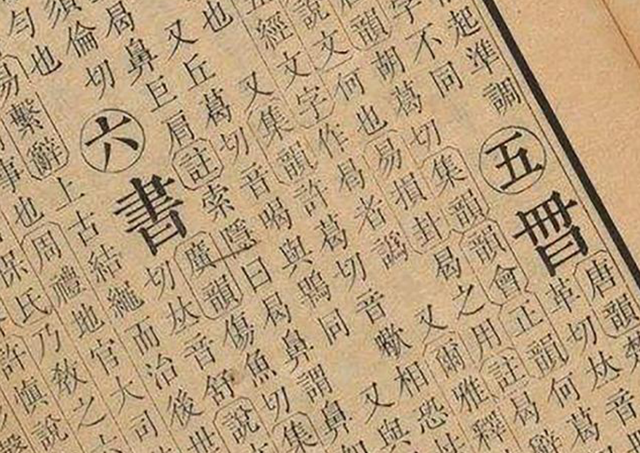 起準調
五
唐韻
革切𠀤音
字不同
韻胡葛切集韻韻會正韻何葛
說文何也易損卦曷之用註曷
五經文字作曷者譌又爾雅釋
又集韻許葛切音歇相恐
又丘葛切音喝與鶡同又與
曷鼻巨肩註索隱曰曷鼻謂鼻
須倫切
勻也
六
書
廣韻傷魚切集
切𠀤音舒說
易繫辭上古結繩而治後世
事也周禮地官大司
保氏乃敎之
許慎說